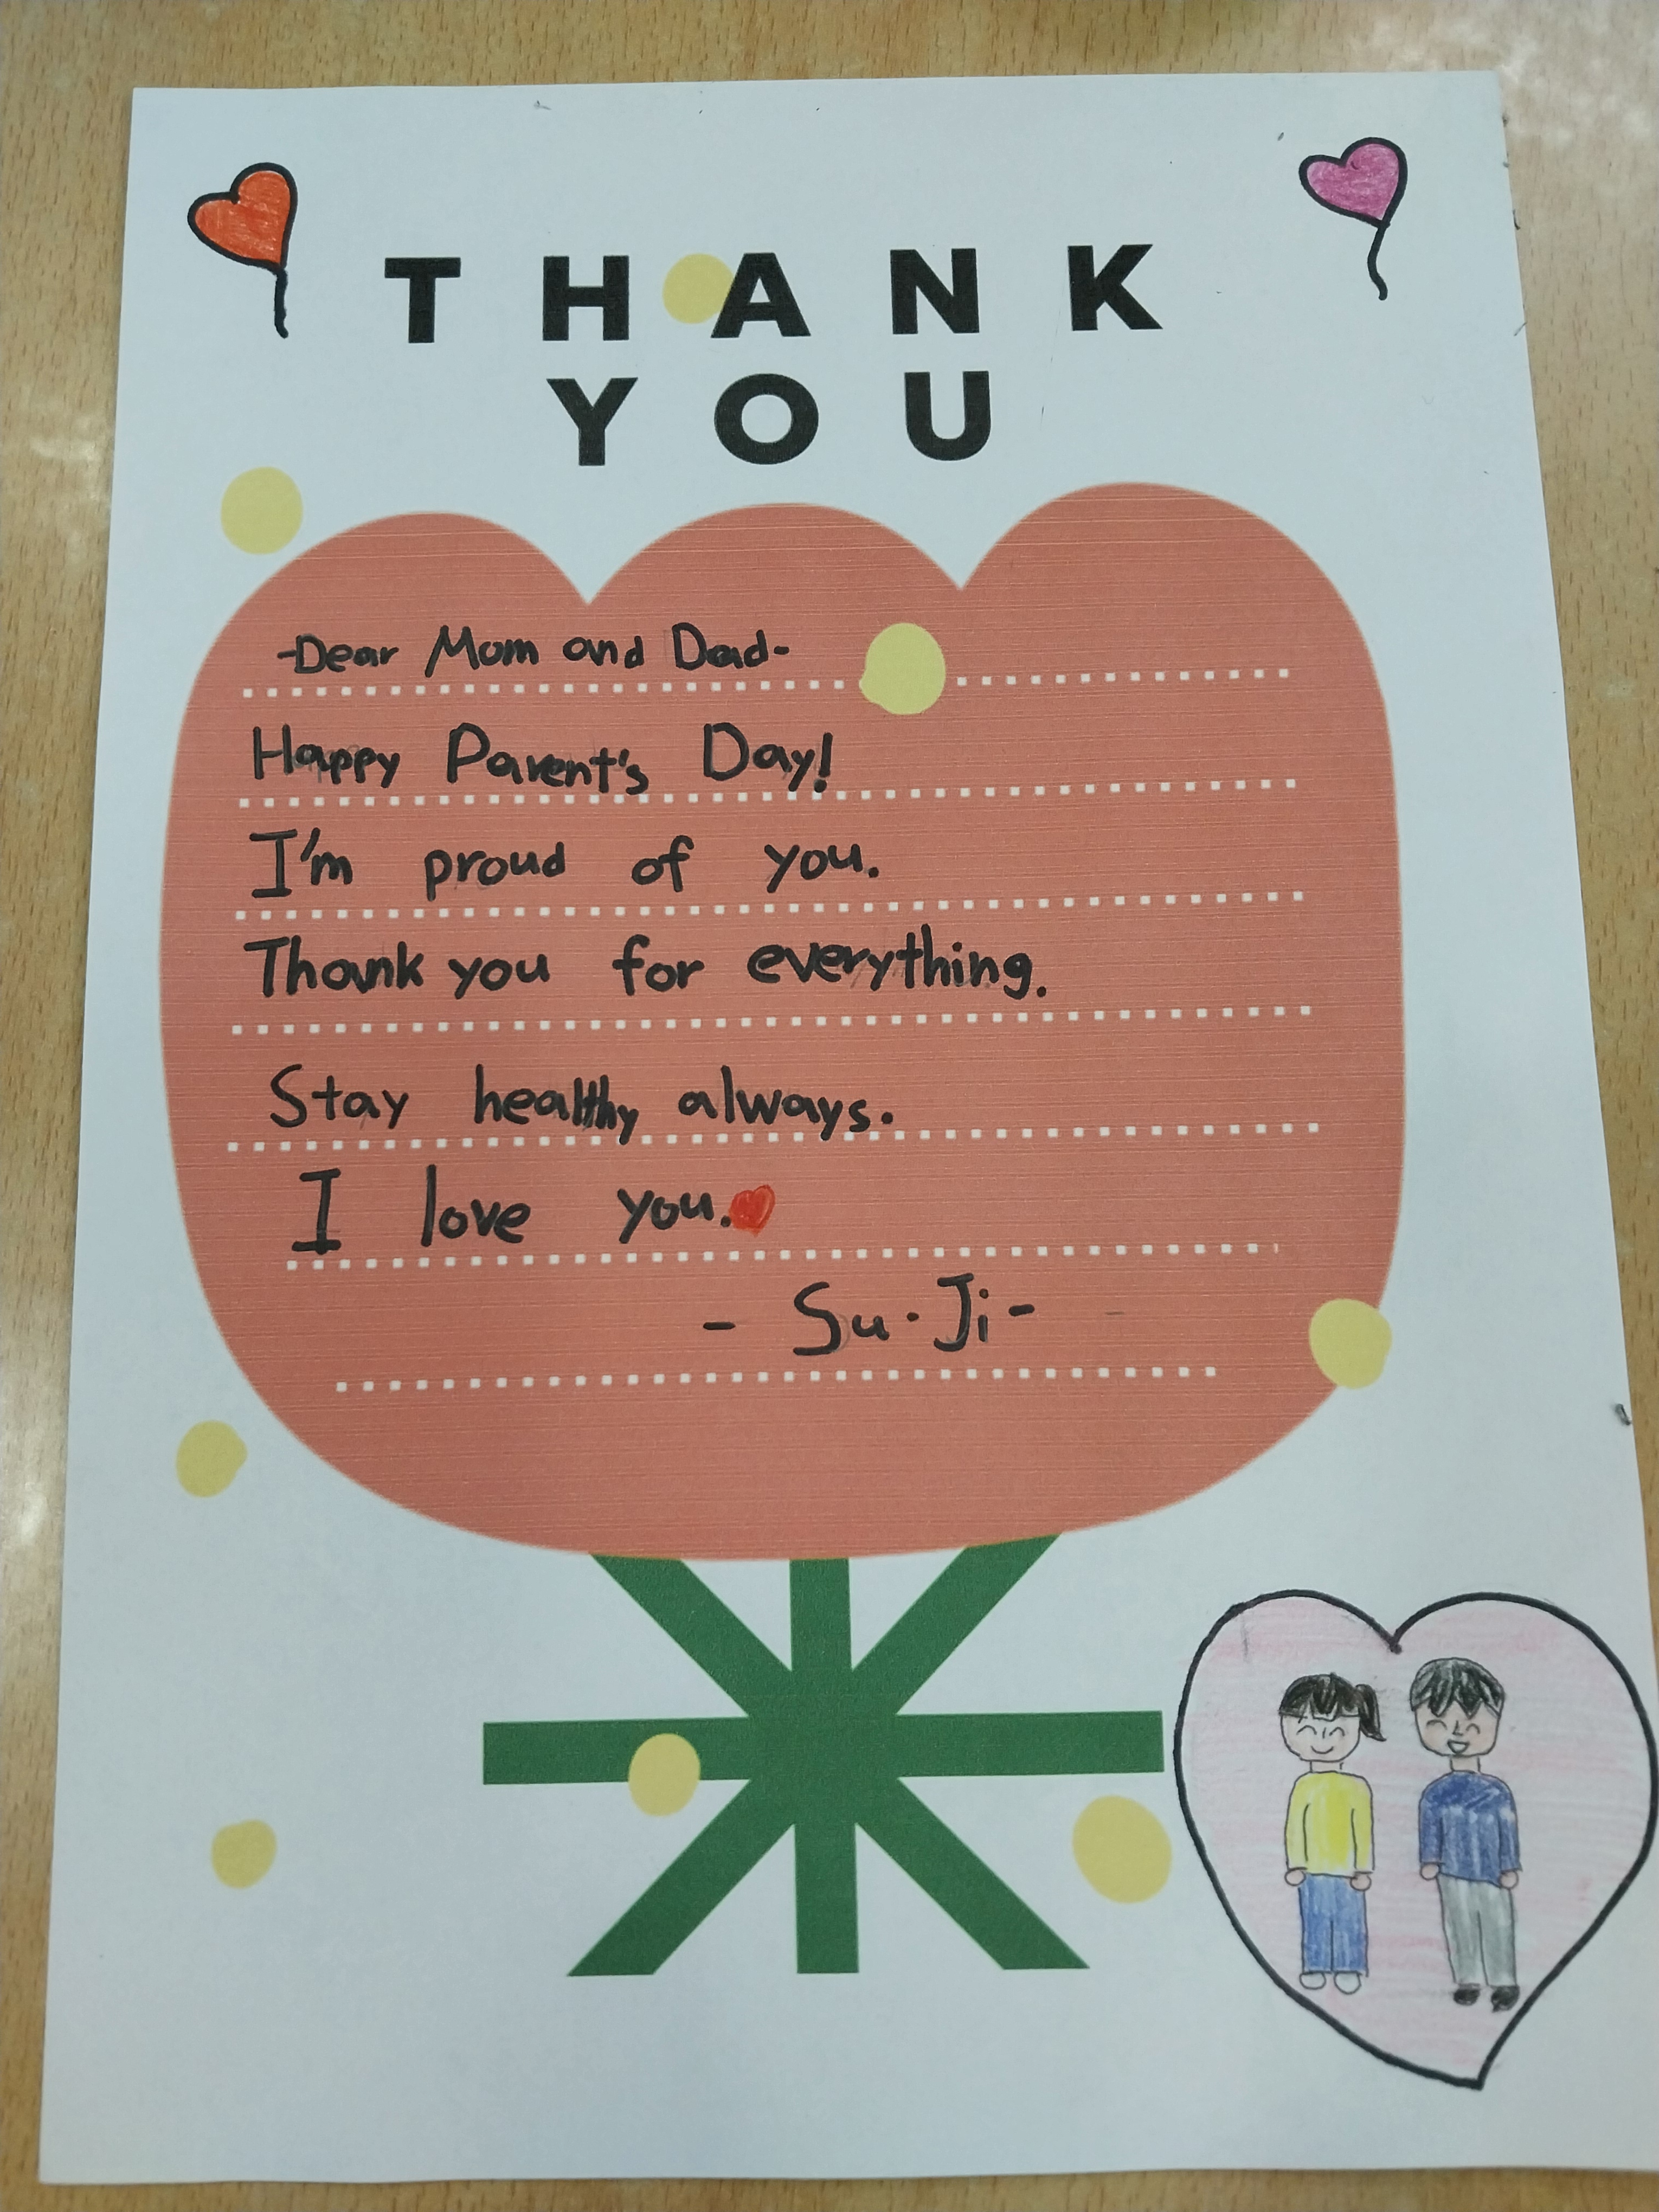 THANK
YOU
-Dear Mom and Dad-
Happy Parent's Day!
I'm proud of you.
Thank you for everything.
Stay healthy always.
I love you.
- Su·Ji-